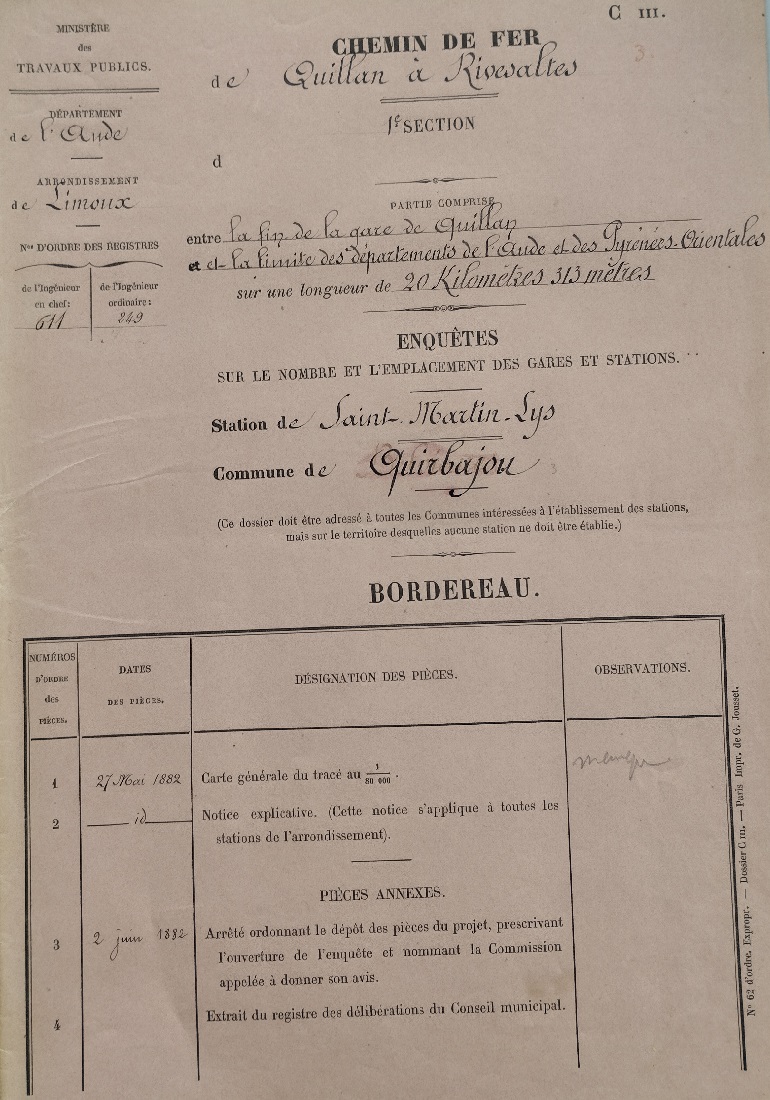 C III.
MINISTÈRE
des
TRAVAUX PUBLICS.
DÉPARTEMENT
de l'Aude
ARRONDISSEMENT
de Limoux
Nos D'ORDRE DES REGISTRES
de l'Ingénieur
en chef:
611
de l'Ingénieur
ordinaire:
249
CHEMIN DE FER
de Quillan à Rivesaltes
1e SECTION
d
PARTIE COMPRISE
entre la fin de la gare de Quillan
et et la limite des départements de l'Aude et des Pyrénées-Orientales
sur une longueur de 20 Kilomètres 313 mètres
ENQUÊTES
SUR LE NOMBRE ET L'EMPLACEMENT DES GARES ET STATIONS.
Station de Saint-Martin-Lys
Commune de Quirbajou
(Ce dossier doit être adressé à toutes les Communes intéressées à l'établissement des stations,
mais sur le territoire desquelles aucune station ne doit être établie.)
BORDEREAU.
NUMÉROS
D'ORDRE
des
PIÈCES.
DATES
DES PIÈCES.
DÉSIGNATION DES PIÈCES.
OBSERVATIONS.
1 27 Mai 1882 Carte générale du tracé au 1/80 000.
2 id Notice explicative. (Cette notice s'applique à toutes les
stations de l'arrondissement).
PIÈCES ANNEXES.
3 2 juin 1882 Arrêté ordonnant le dépôt des pièces du projet, prescrivant
l'ouverture de l'enquête et nommant la Commission
appelée à donner son avis.
4 Extrait du registre des délibérations du Conseil municipal.
No 62 d'ordre. Expropr. — Dossier C III. — Paris Impr. de G. Jousset.